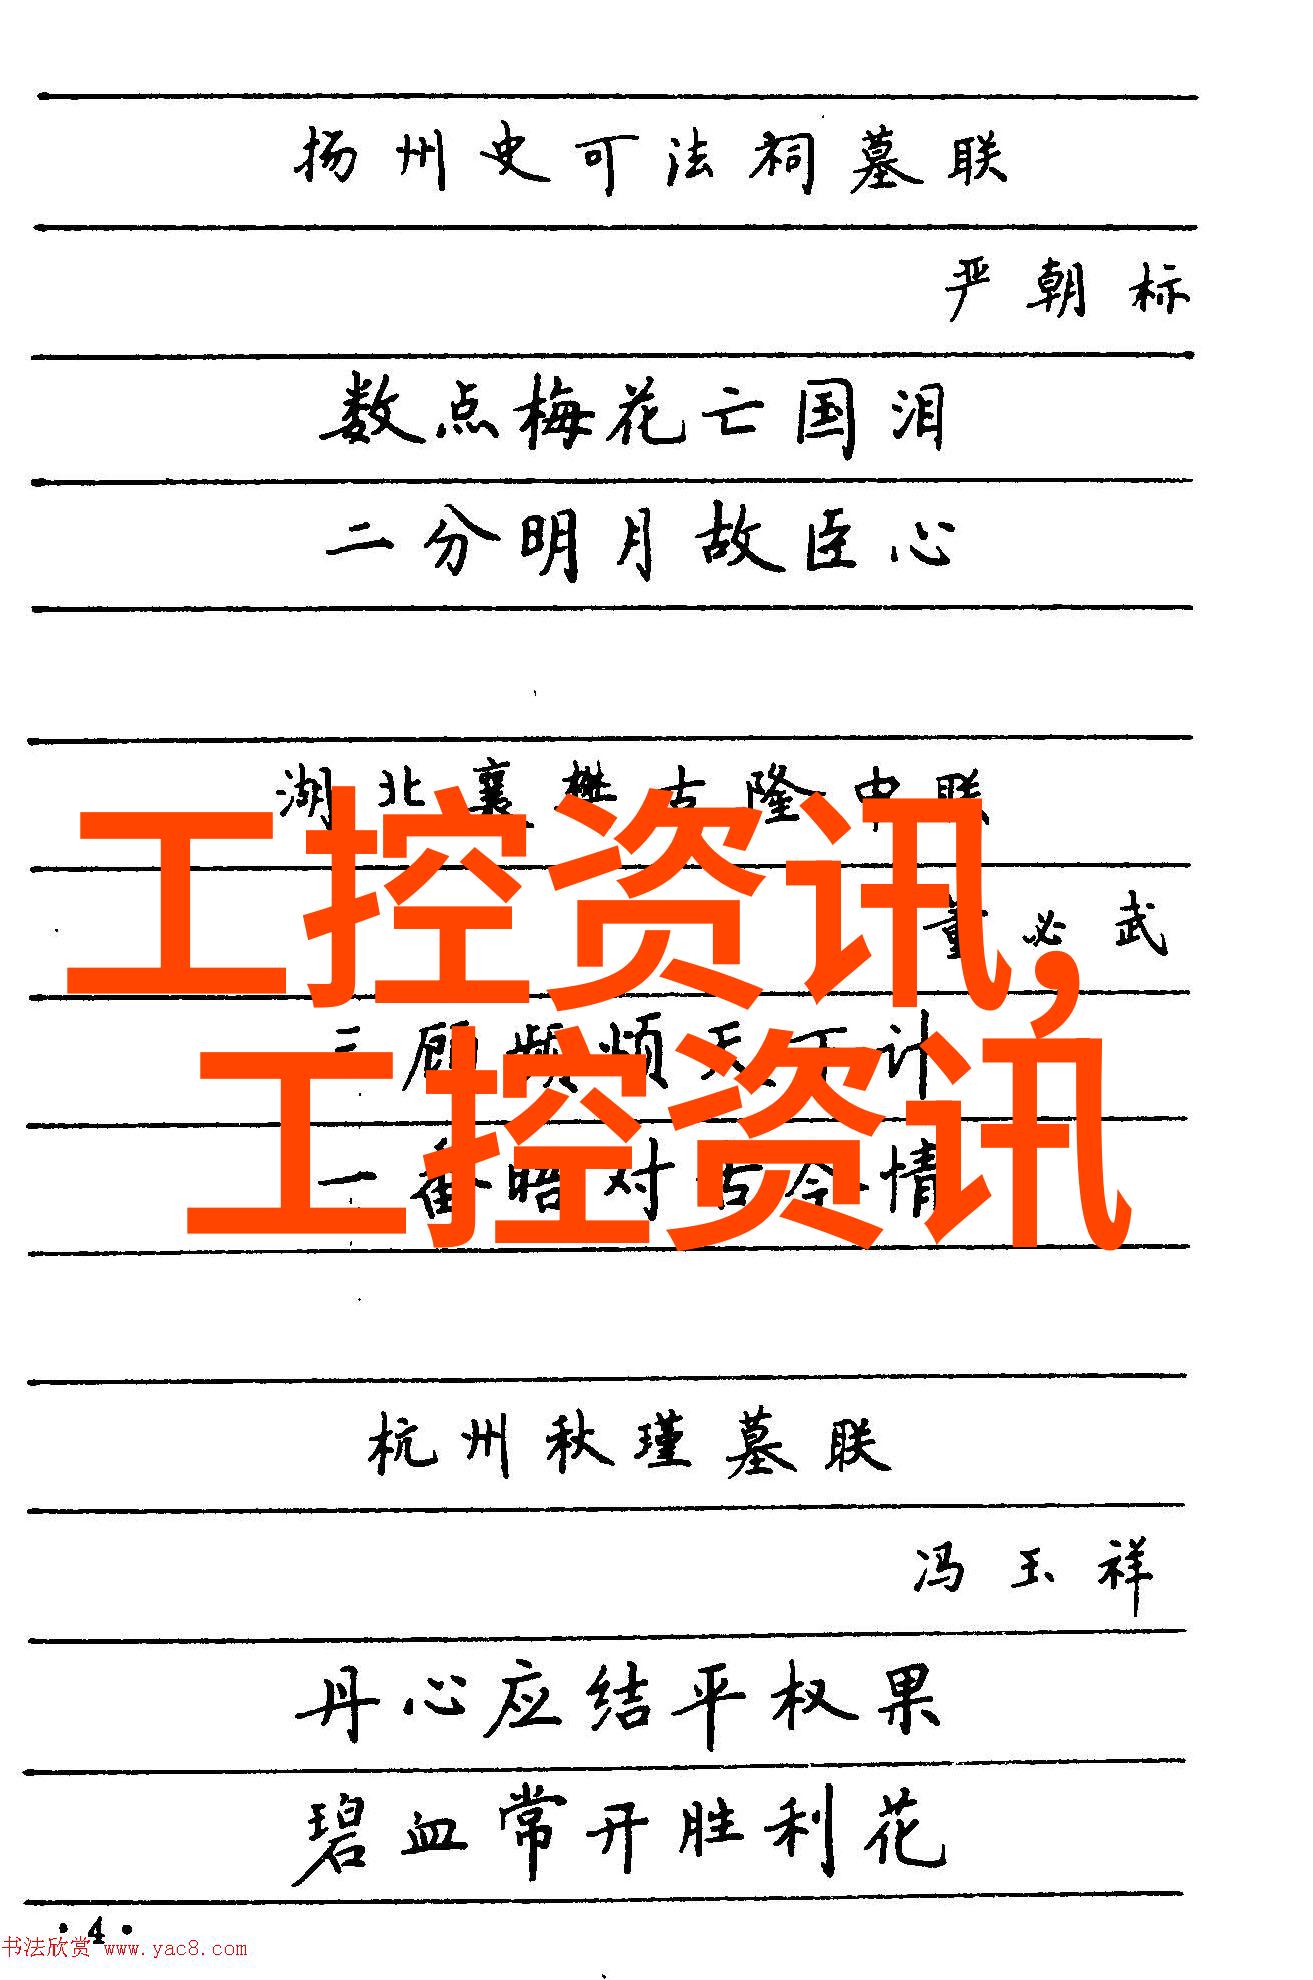 扬州史可法祠墓联
严朝标
数点梅花亡国泪
二分明月故臣心
湖北襄樊古隆中联
工控资讯,
董必武
三顾频烦天下计
工控资讯
一番晤对古今情
杭州秋瑾墓联
冯玉祥
丹心应结平权果
碧血常开胜利花
·4·
书法欣赏 www.yac8.com